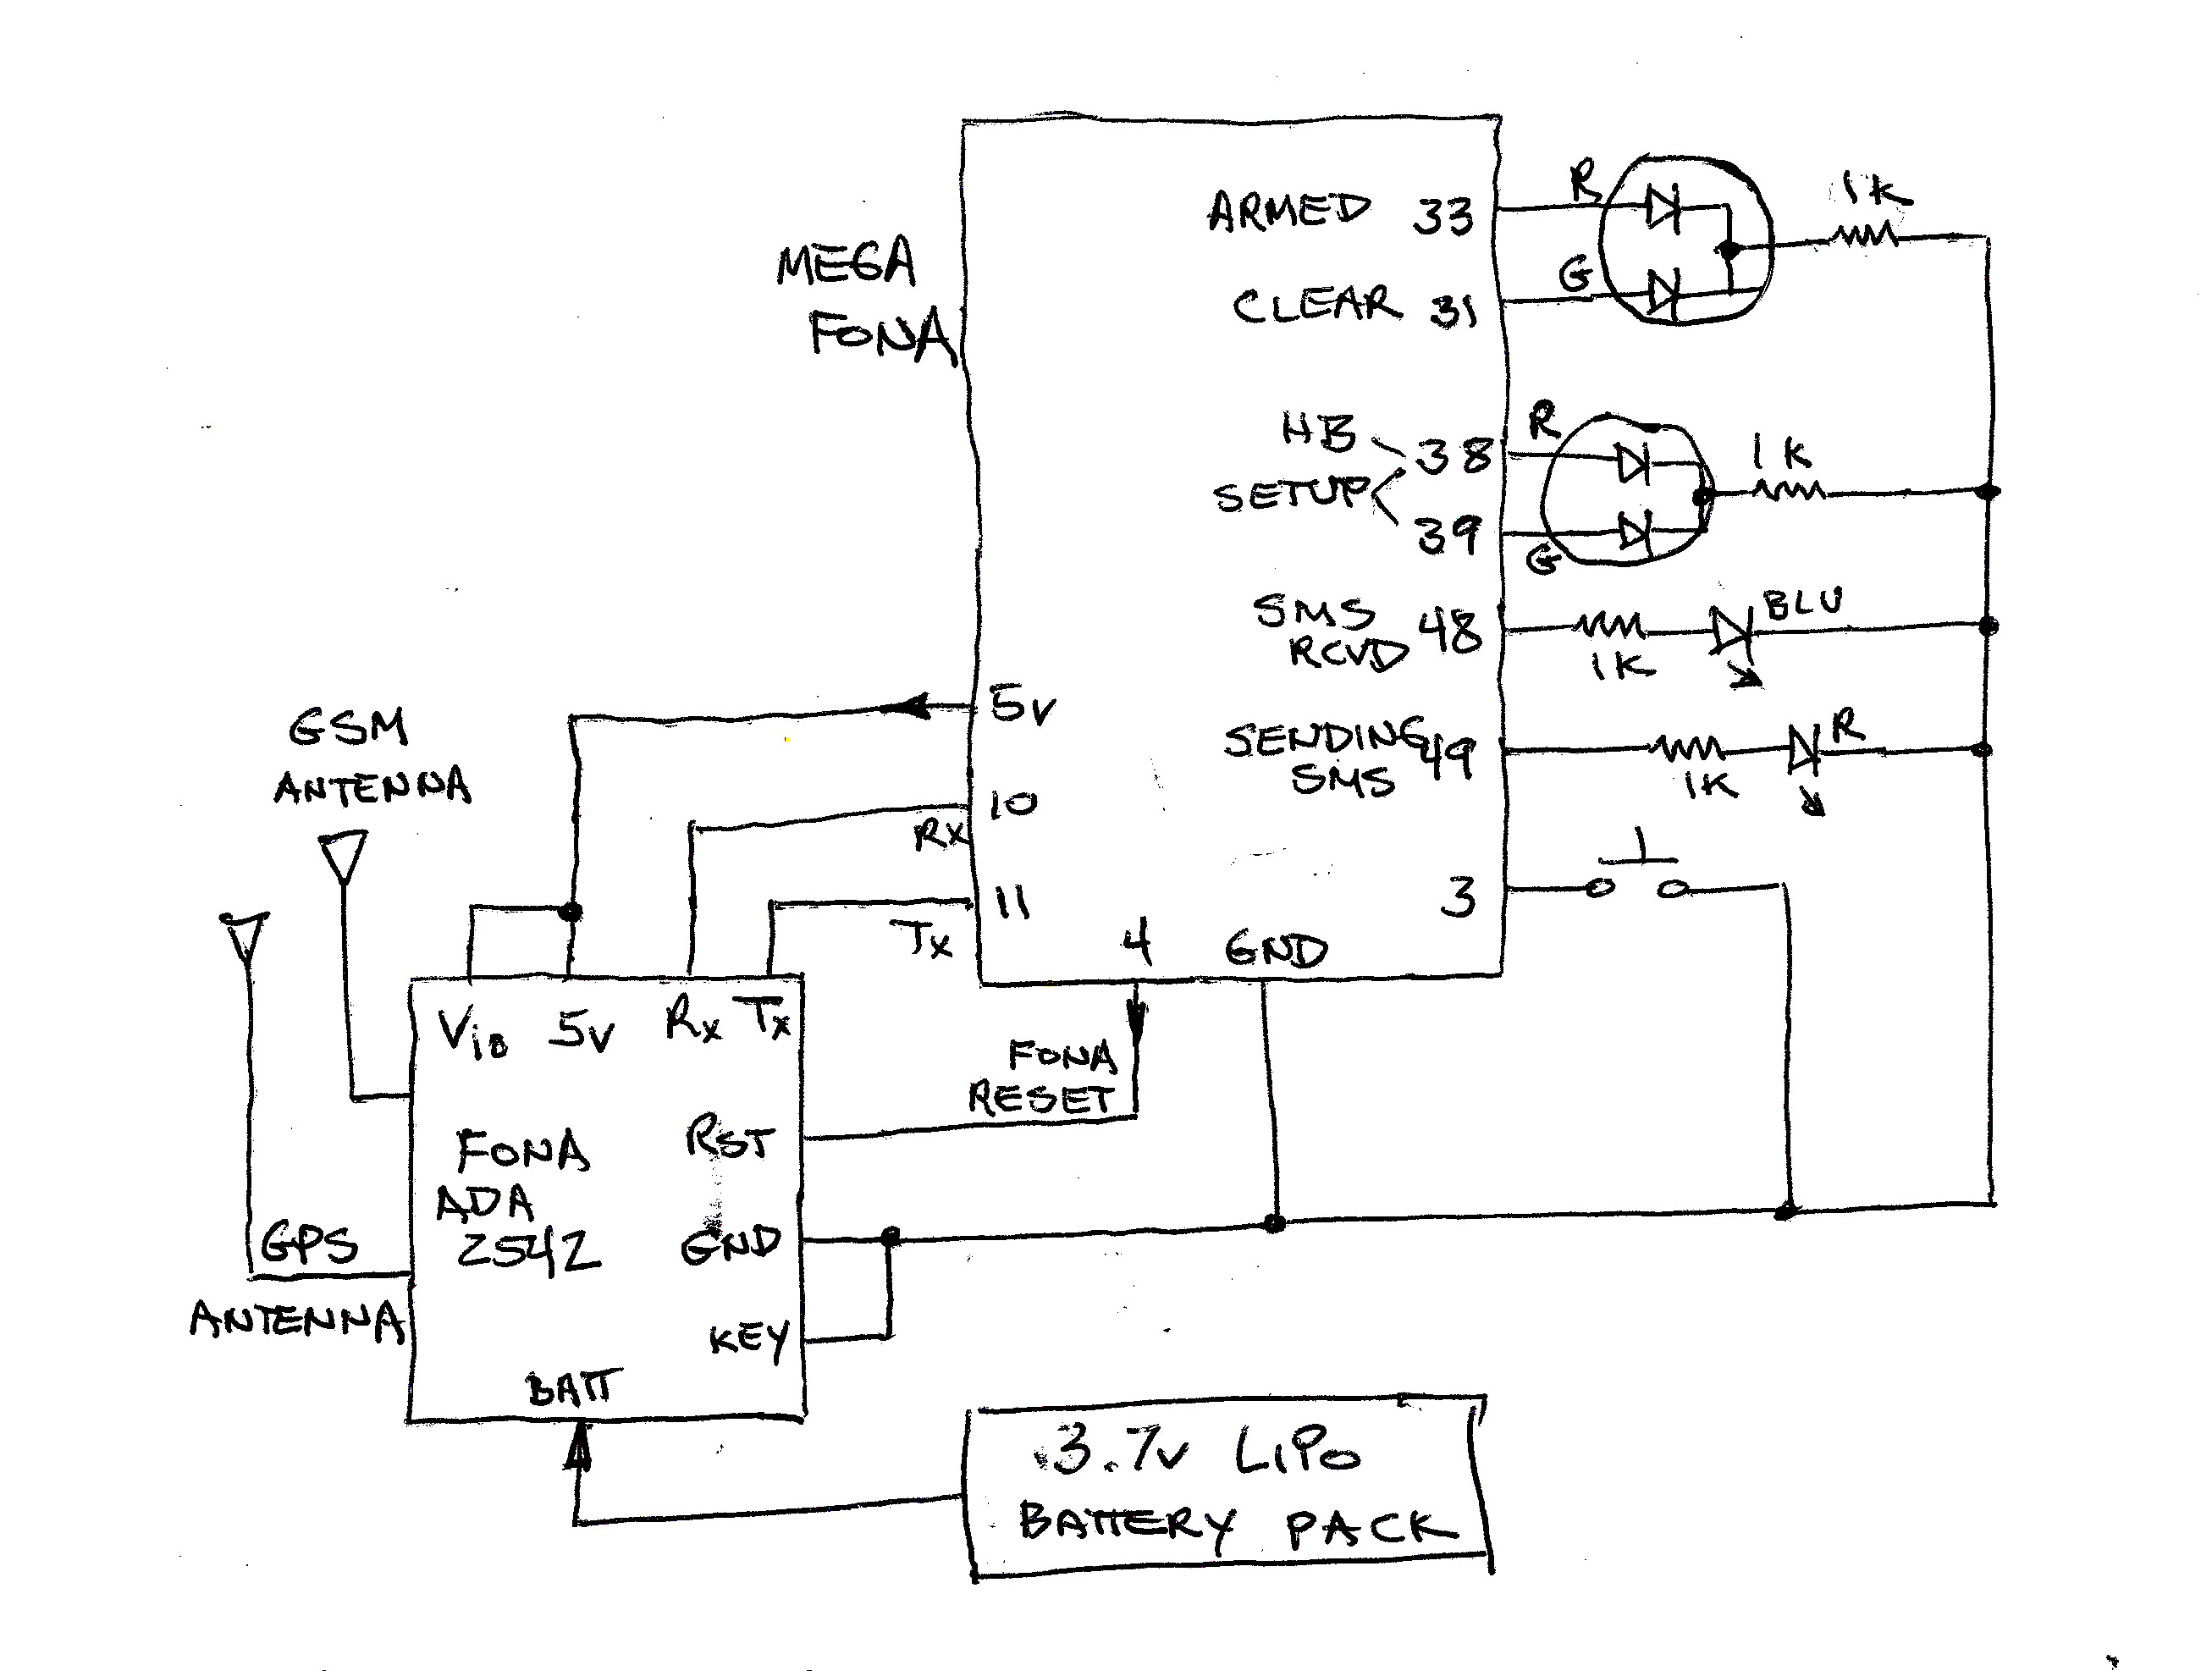 MEGA
FONA
ARMED 33
CLEAR 31
R
G
1K
HB
SETUP
38
39
R
G
1K
SMS
RCVD
48
1K
BLU
SENDING
SMS
49
1K
R
3
5V
10
Rx
11
Tx
4
GND
FONA
RESET
GSM
ANTENNA
GPS
ANTENNA
Vio 5V Rx Tx
FONA
ADA
2542
RST
GND
KEY
BATT
3.7V LiPo
BATTERY PACK